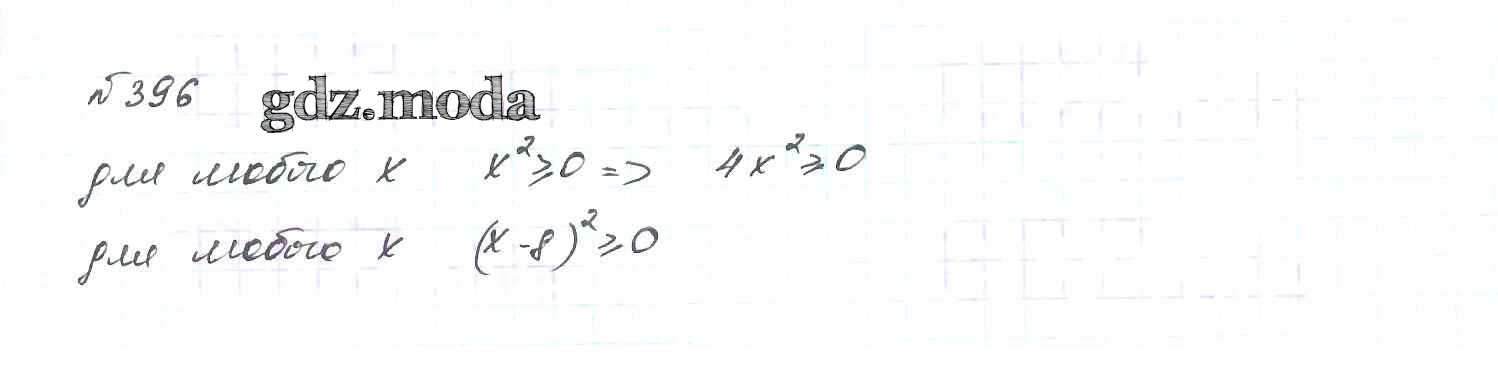 №396 gdz.moda
для любого x x²≥0 => 4x²≥0
для любого x (x-8)²≥0